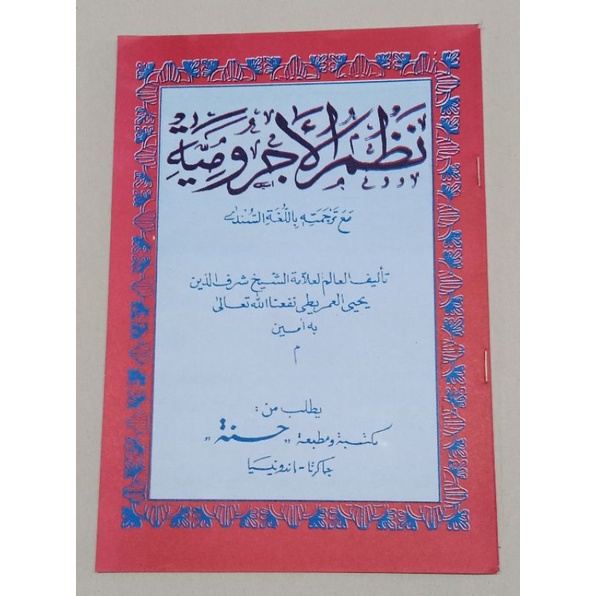 نظم الأجرومية
مع ترجمته باللغة السنداي
تأليف العالم لعلامة الشيخ شرف الدين
يحيى العمريطى نفعنا الله تعالى
به أمين
م
يطلب من:
مكتبة ومطبعة "حسنة"
جاكرتا - اندونيسيا